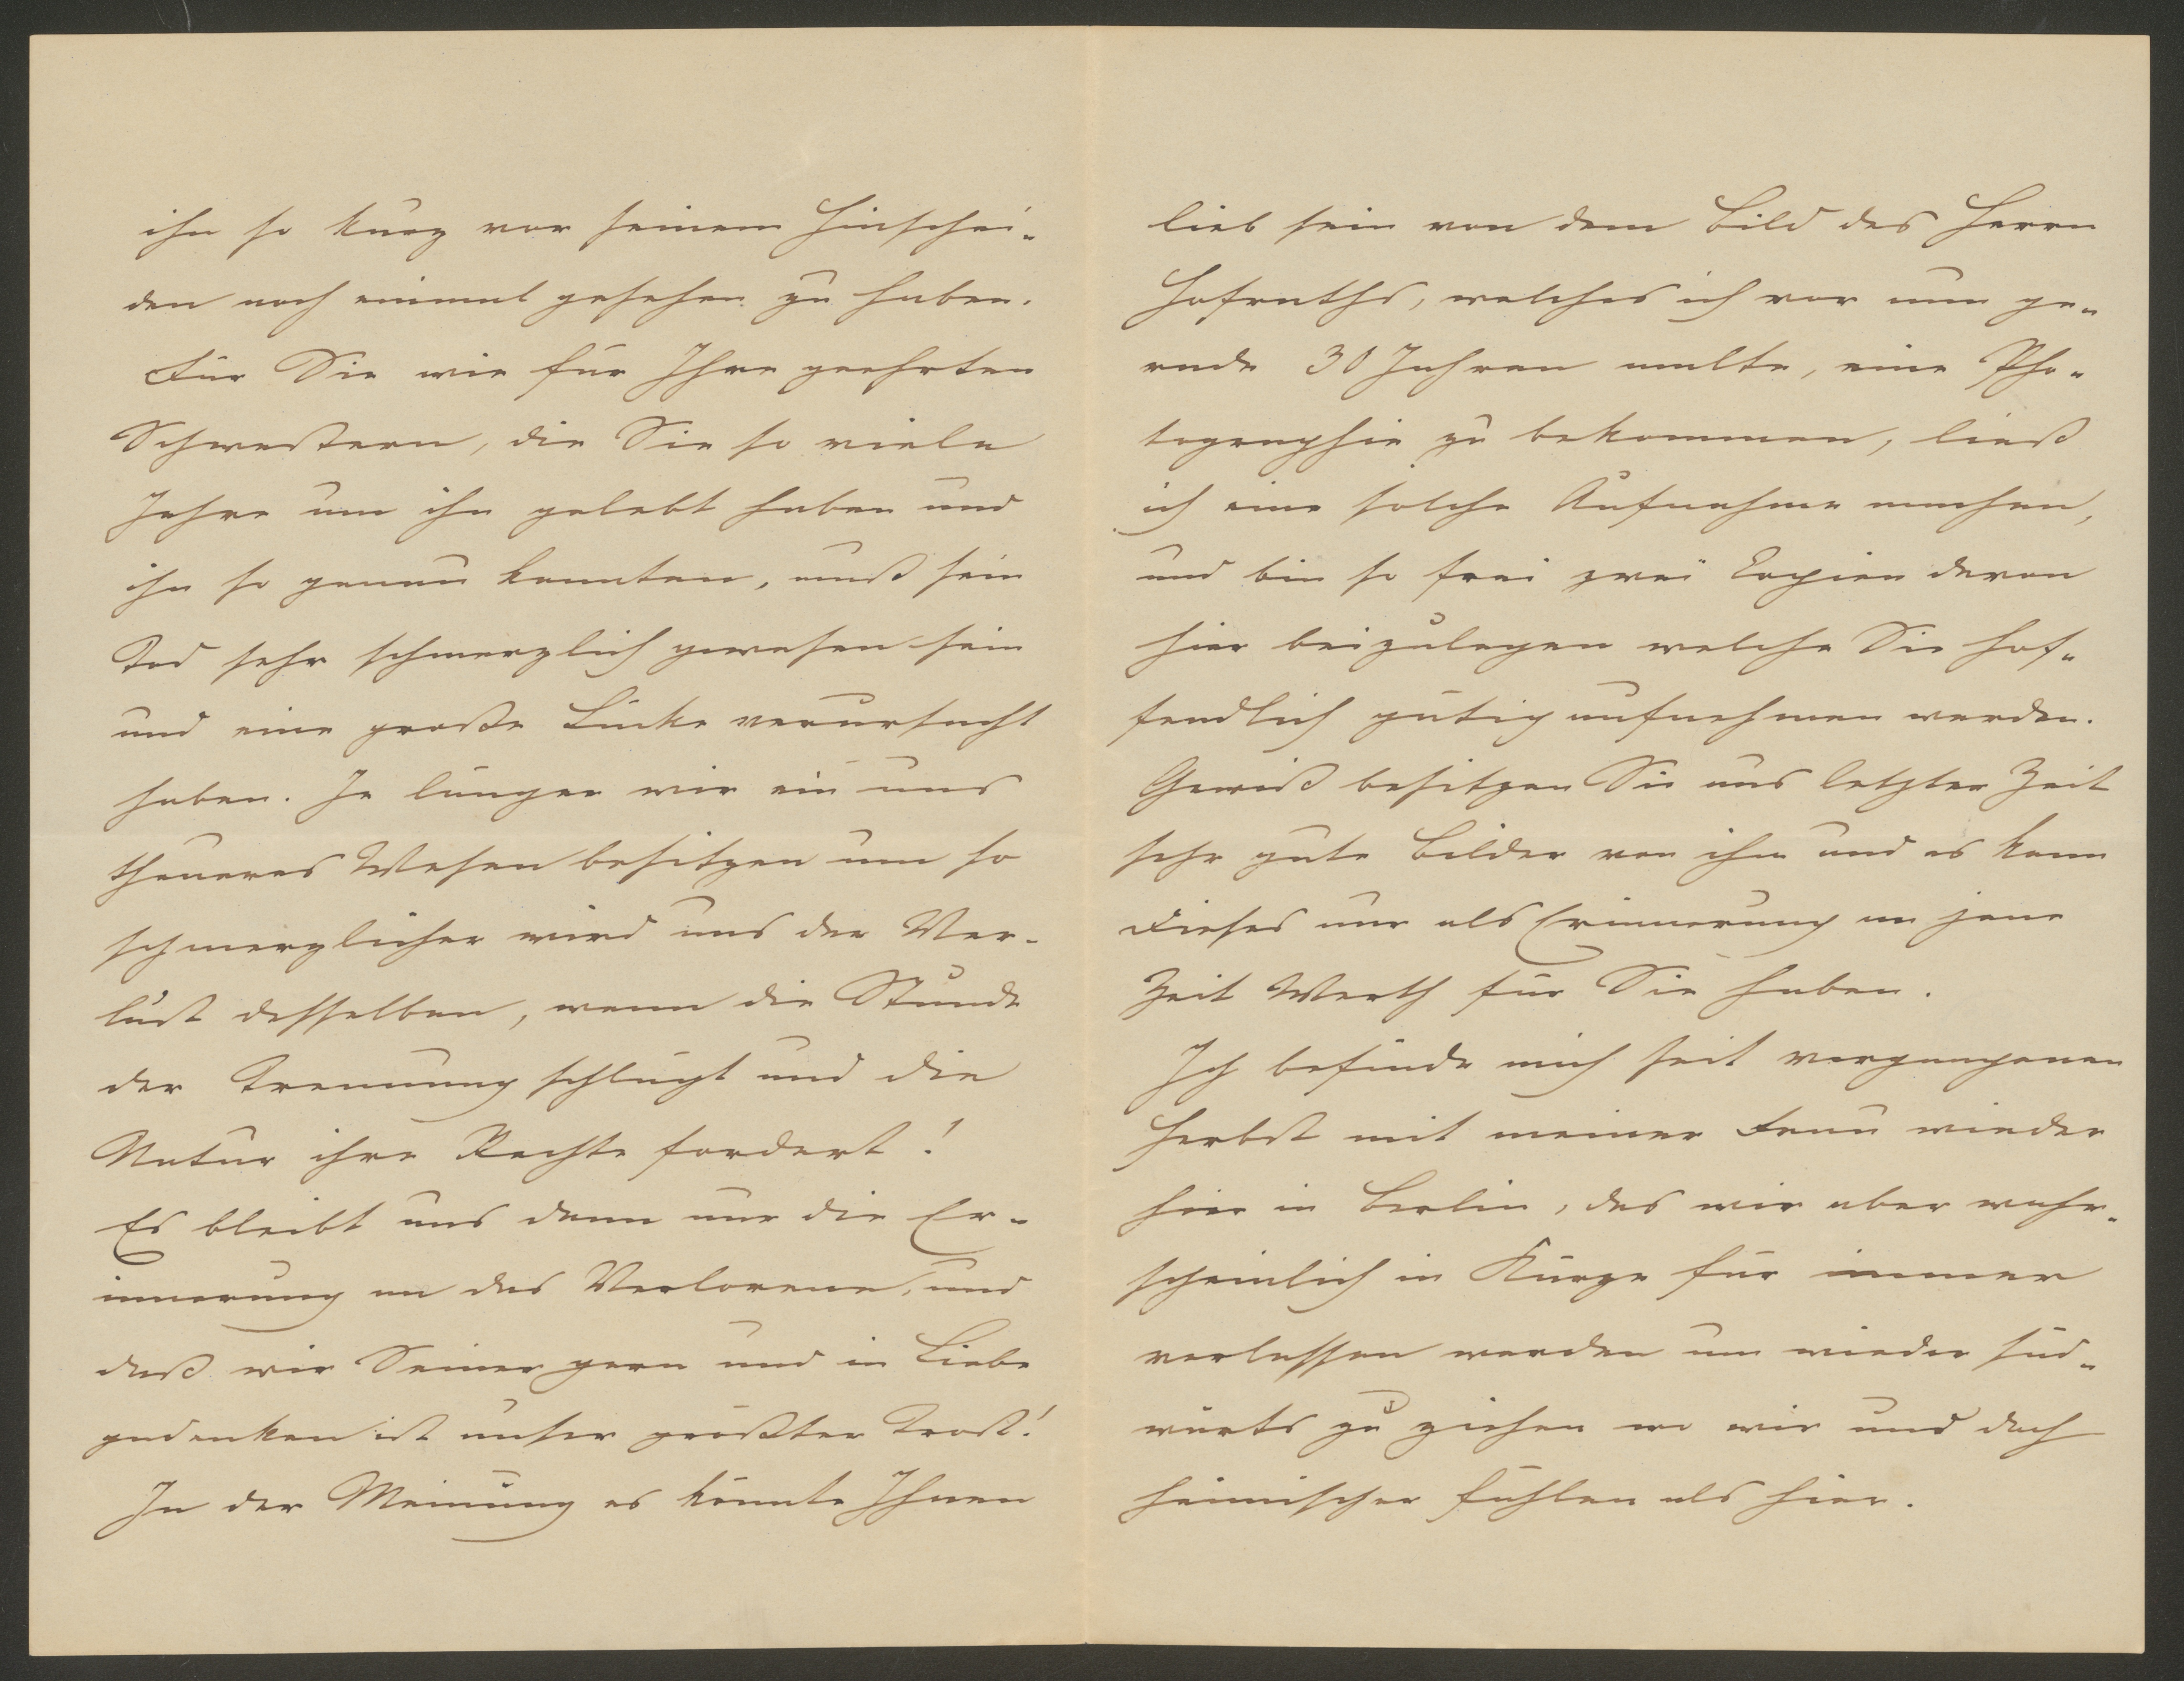 ihn so kurz vor seinem Hinschei-
den noch einmal gesehen zu haben.
Für Sie wie für Ihre geehrten
Schwestern, die Sie so viele
Jahre um ihn gelebt haben und
ihn so genau kannten, muß sein
Tod sehr schmerzlich gewesen sein
und eine große Lücke verursacht
haben. Je länger wir ein uns
theueres Wesen besitzen um so
schmerzlicher wird uns der Ver-
lust desselben, wenn die Stunde
der Trennung schlägt und die
Natur ihre Rechte fordert!
Es bleibt uns dann nur die Er-
innerung an das Verlorene, und
daß wir Seiner gern und in Liebe
gedenken ist unser größter Trost!
In der Meinung es könnte Ihnen
lieb sein von dem Bild des Herrn
Hofraths, welches ich vor nun ge-
rade 30 Jahren malte, eine Pho-
tographie zu bekommen, ließ
ich eine solche Aufnahme machen,
und bin so frei zwei Copien davon
hier beizulegen welche Sie hof-
fendlich gütig aufnehmen werden.
Gewiß besitzen Sie aus letzter Zeit
sehr gute Bilder von ihm und es kann
dieses nur als Erinnerung an jene
Zeit Werth für Sie haben.
Ich befinde mich seit vergangenen
Herbst mit meiner Frau wieder
hier in Berlin, das wir aber wahr-
scheinlich in Kürze für immer
verlassen werden um wieder süd-
wärts zu ziehen wo wir und doch
heimischer fühlen als hier.